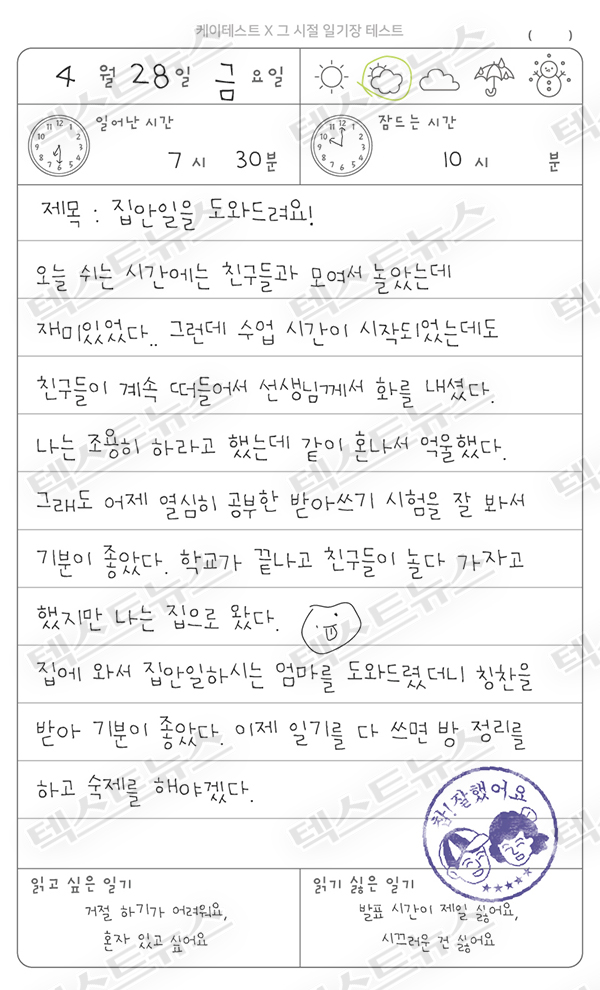 케이테스트 X 그 시절 일기장 테스트
( )
4 월 28 일 금 요일
일어난 시간
7 시 30 분
잠드는 시간
10 시 분
제목 : 집안일을 도와드려요!
오늘 쉬는 시간에는 친구들과 모여서 놀았는데
재미있었다.. 그런데 수업 시간이 시작되었는데도
친구들이 계속 떠들어서 선생님께서 화를 내셨다.
나는 조용히 하라고 했는데 같이 혼나서 억울했다.
그래도 어제 열심히 공부한 받아쓰기 시험을 잘 봐서
기분이 좋았다. 학교가 끝나고 친구들이 놀다 가자고
했지만 나는 집으로 왔다.
집에 와서 집안일하시는 엄마를 도와드렸더니 칭찬을
받아 기분이 좋았다. 이제 일기를 다 쓰면 방 정리를
하고 숙제를 해야겠다.
참! 잘했어요
읽고 싶은 일기
거절 하기가 어려워요,
혼자 있고 싶어요
읽기 싫은 일기
발표 시간이 제일 싫어요,
시끄러운 건 싫어요
텍스트뉴스